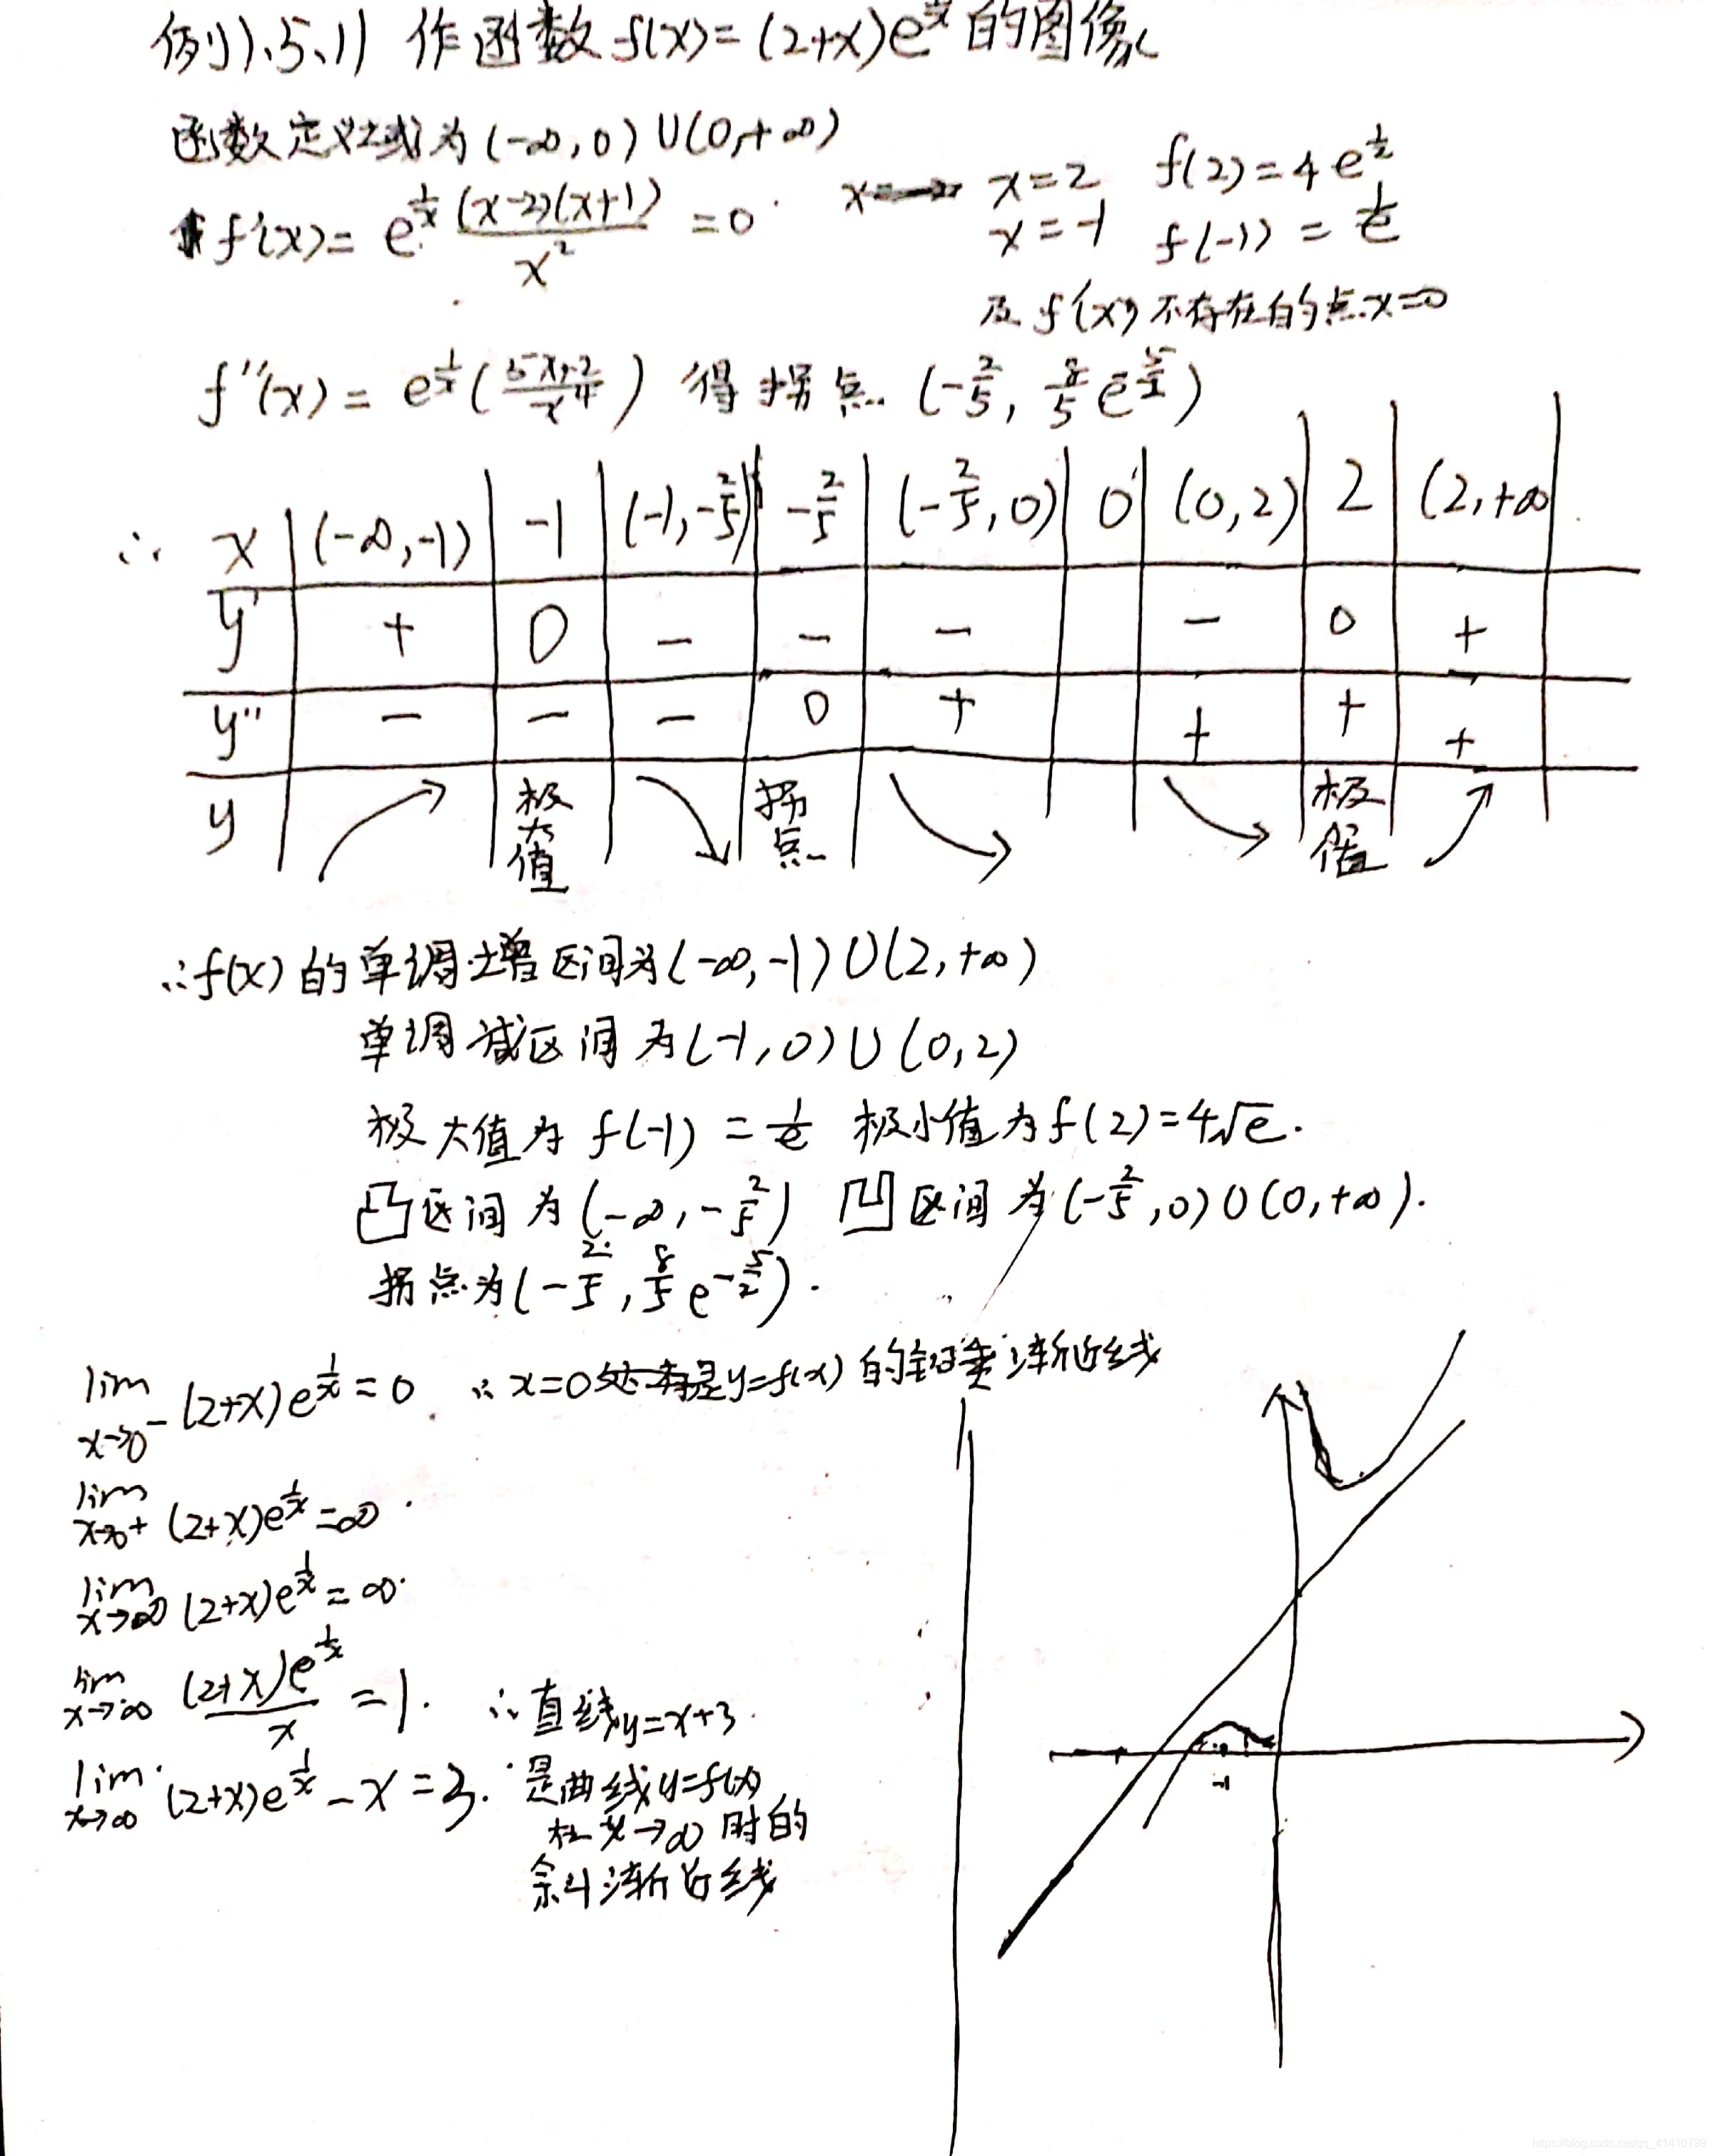 例1.5.11 作函数 f(x)=(2+x)e^{1/x} 的图像
函数定义域为(-∞,0)∪(0,+∞)
f'(x)= e^{1/x} (x-2)(x+1)/x² =0 x=2 f(2)=4e^{1/2}
x=-1 f(-1)=1/e
及 f'(x) 不存在的点 x=0
f''(x)= e^{1/x}((5x+2)/x⁴) 得拐点 (-2/5, 8/5 e^{-5/2})
∴ x | (-∞,-1) | -1 | (-1,-2/5) | -2/5 | (-2/5,0) | 0 | (0,2) | 2 | (2,+∞
y' | + | 0 | - | - | - | | - | 0 | +
y'' | - | - | - | 0 | + | | + | + | +
y | 极大值 | 拐点 | 极值
∴f(x)的单调增区间为(-∞,-1)∪(2,+∞)
单调减区间为(-1,0)∪(0,2)
极大值为 f(-1)=1/e 极小值为f(2)=4√e.
凸区间为(-∞,-2/5) 凹区间为(-2/5,0)∪(0,+∞).
拐点为(-2/5, 8/5 e^{-5/2}).
lim x→0⁻ (2+x)e^{1/x}=0 ∴x=0是y=f(x)的铅垂渐近线
lim x→0+ (2+x)e^{1/x}=∞
lim x→∞ (2+x)e^{1/x}=∞
lim x→∞ (2+x)e^{1/x}/x =1. ∴直线y=x+3
lim x→∞ (2+x)e^{1/x}-x=3. 是曲线y=f(x)
在x→∞时的
斜渐近线
-1
https://blog.csdn.net/qq_41410799